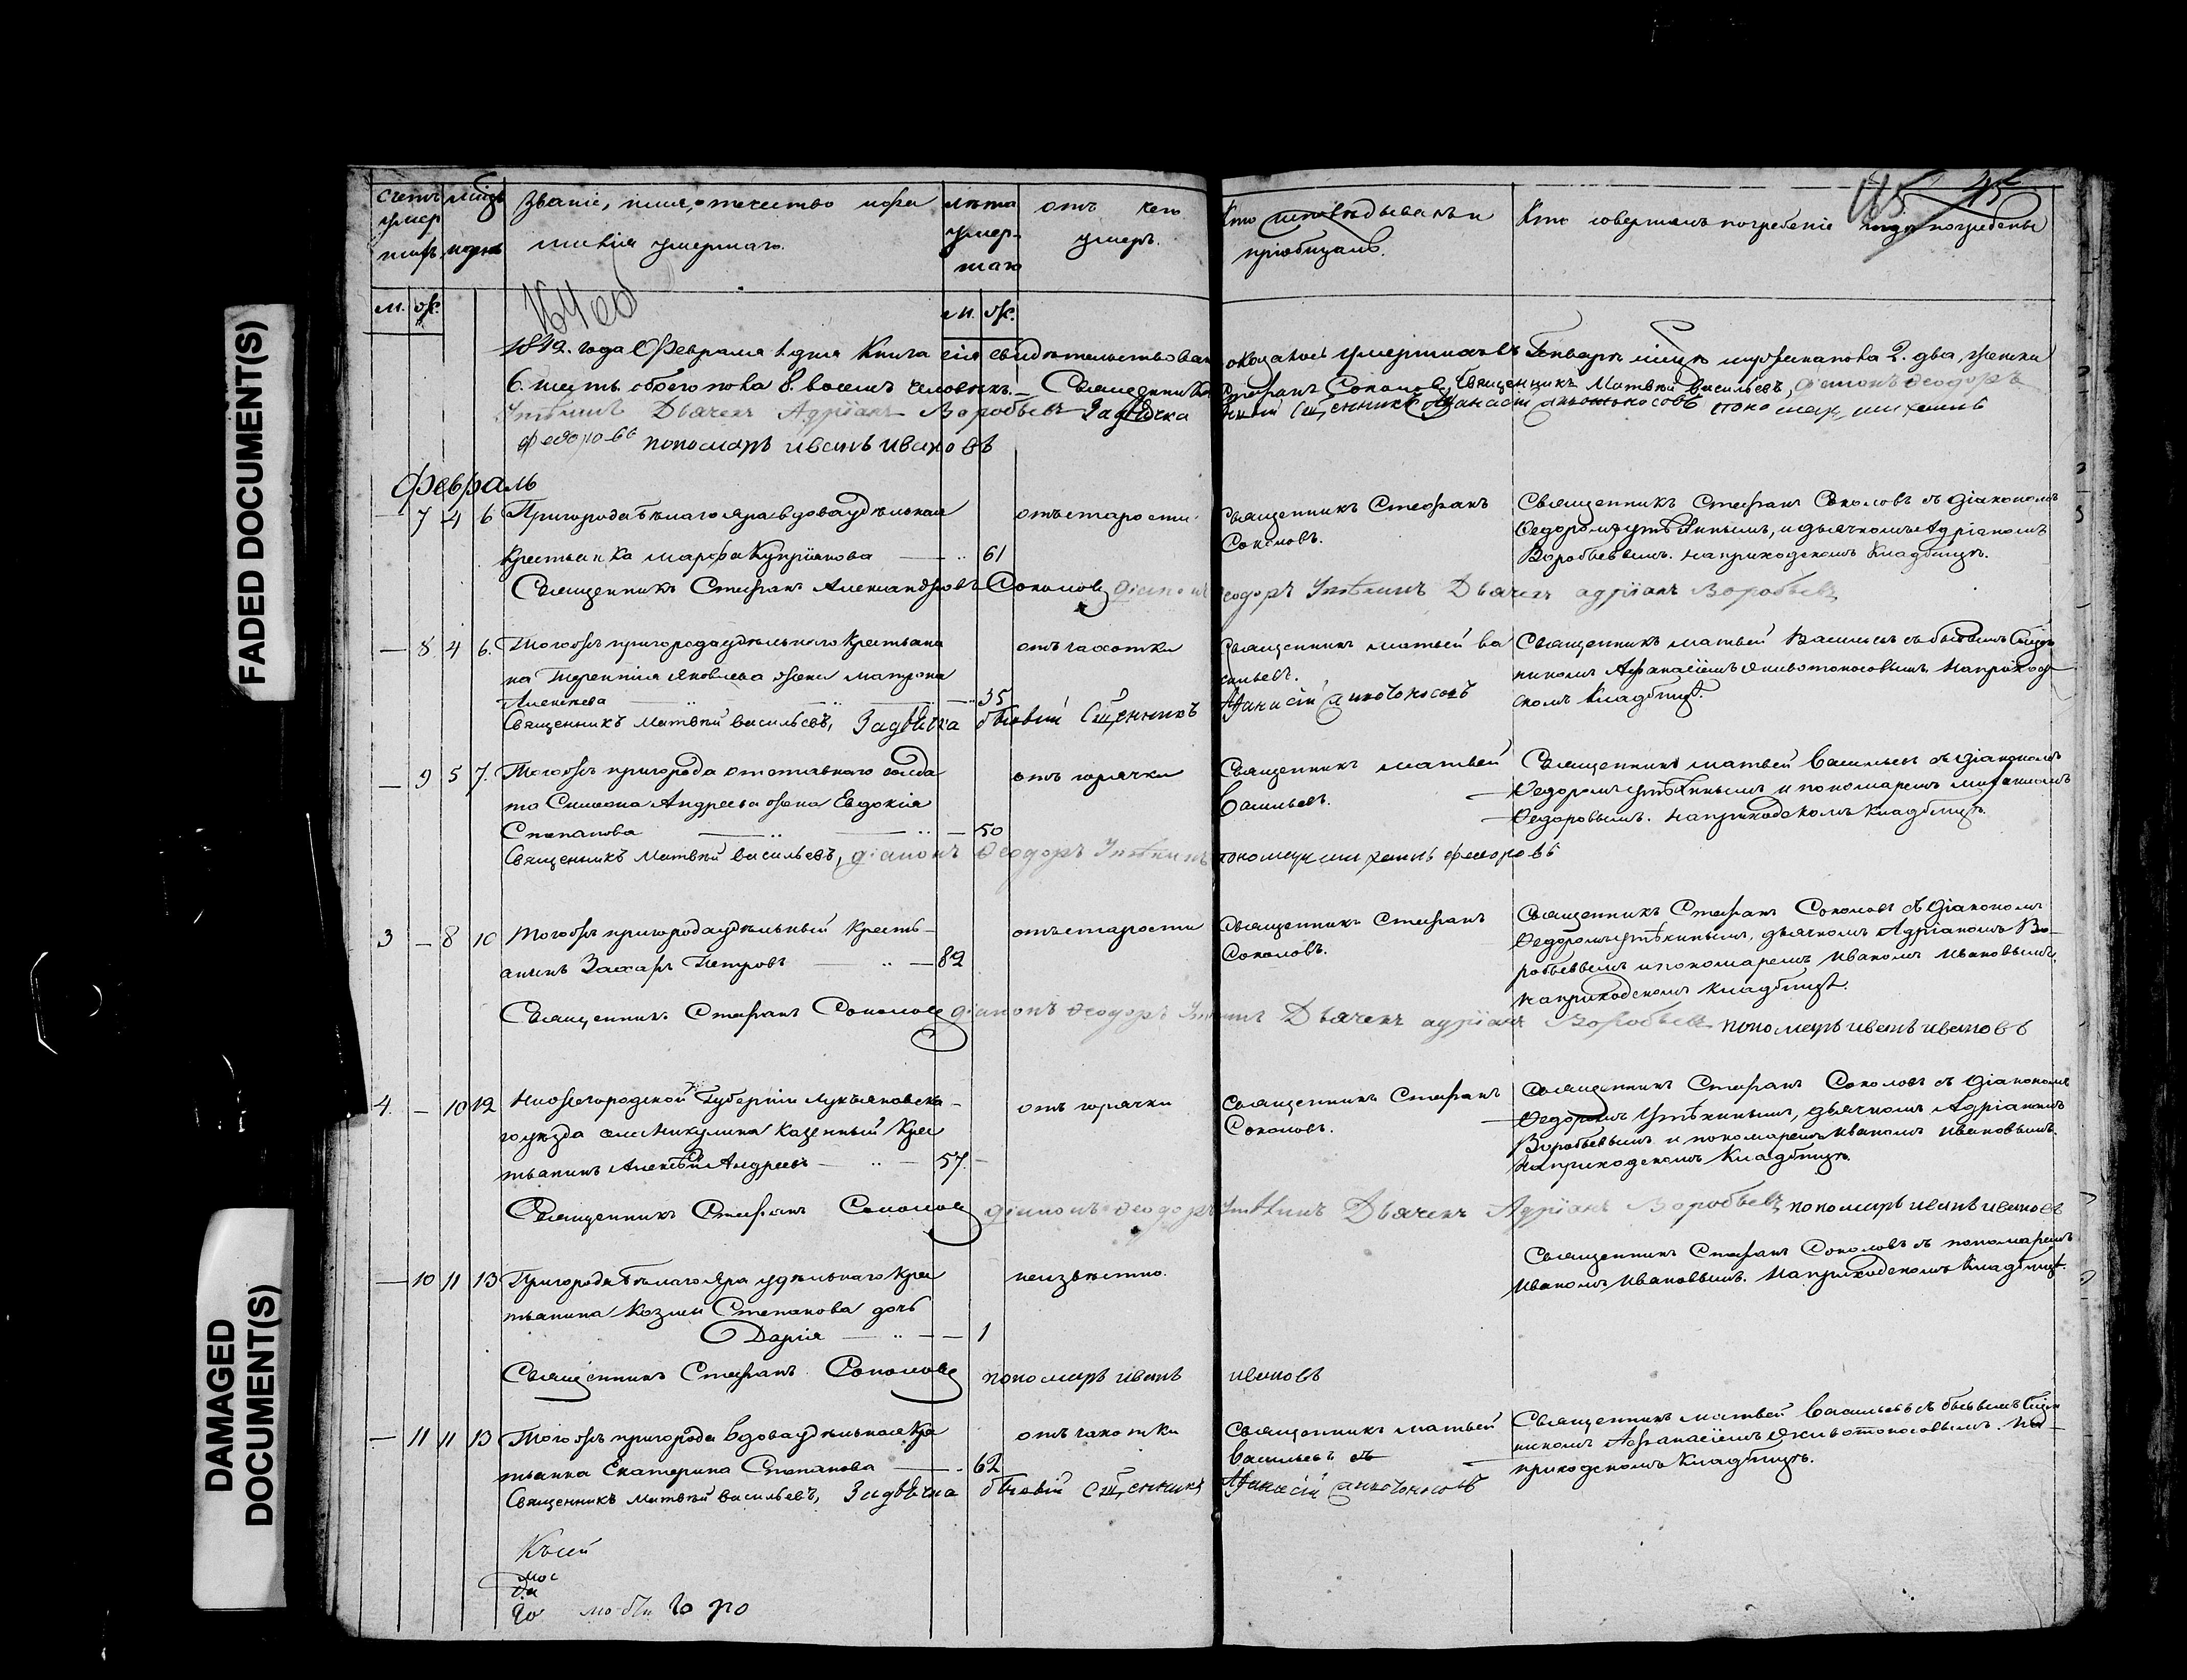 FADED DOCUMENT(S)
DAMAGED
DOCUMENT(S)
45
счетъ умер шихъ
м. ж.
мѣсяцъ
Званіе, имя, отчество и фа
милія умершаго.
лѣта
умер-
шаго
м. ж.
отъ чего
умеръ.
Кто исповѣдывалъ и
пріобщалъ.
Кто совершалъ погребеніе и гдѣ погребены
1842. года Февраля 1. дня Книга сія свидѣтельствована оказалось умершихъ въ Генварѣ мѣсяцѣ мужеска пола 2. два, женска
6. шесть обоего пола 8. восемь человѣкъ. Священникъ Стефанъ Соколовъ, Священникъ Матвѣй Васильевъ, діаконъ Ѳеодоръ
Утѣхинъ Дьячекъ Адріанъ Воробьевъ Заддѣчка бывшій Сщенникъ Афанасій пономарь михаилъ
федоровъ пономарь иванъ ивановъ
Февраль
— 7 4 6 Пригорода Бѣлаго Яра вдова удѣльная
крестьянка Марфа Купріянова — 61
отъ старости.
Священникъ Стефанъ
Соколовъ.
Священникъ Стефанъ Соколовъ съ діакономъ
Ѳедоромъ Утѣхинымъ, и дьячкомъ Адріаномъ
Воробьевымъ. на приходскомъ кладбищѣ.
Священникъ Стефанъ Александровъ Соколовъ діаконъ Ѳеодоръ Утѣхинъ Дьячекъ адріанъ Воробьевъ
— 8 4 6. Тогожъ пригорода удѣльнаго крестьяни
на Терентія Яковлева жена Матрона
Алексеева — 35
отъ чахотки
Священникъ Матвей Ва
сильевъ.
Священникъ Матвей Васильевъ съ бывшимъ Сщен
никомъ Афанасіемъ Животоносовымъ. На приход
скомъ кладбищѣ.
Священникъ Матвѣй Васильевъ, бывшій Сщенникъ Афанасій
— 9 5 7. Тогожъ пригорода отставнаго солда
та Симеона Андреева жена Евдокія
Степанова — 50
отъ горячки
Священникъ Матвей
Васильевъ.
Священникъ Матвей Васильевъ съ діакономъ
Ѳедоромъ Утѣхинымъ и пономаремъ Михаиломъ
Ѳедоровымъ. на приходскомъ кладбищѣ.
Священникъ Матвѣй Васильевъ, діаконъ Ѳеодоръ Утѣхинъ пономарь михаилъ федоровъ
3 — 8 10 Тогожъ пригорода удѣльный кресть-
янинъ Захаръ Петровъ — 82
отъ старости
Священникъ Стефанъ
Соколовъ.
Священникъ Стефанъ Соколовъ съ діакономъ
Ѳедоромъ Утѣхинымъ, дьячкомъ Адріаномъ Во-
робьевымъ и пономаремъ Иваномъ Ивановымъ.
на приходскомъ кладбищѣ.
Священникъ Стефанъ Соколовъ діаконъ Ѳеодоръ Утѣхинъ Дьячекъ адріанъ Воробьевъ пономарь иванъ ивановъ
4. — 10 12 Нижегородской Губерніи Лукьяновска-
го уѣзда села Никулина казенный кре
стьянинъ Алексѣй Андреевъ — 57.
отъ горячки
Священникъ Стефанъ
Соколовъ.
Священникъ Стефанъ Соколовъ съ діакономъ
Ѳедоромъ Утѣхинымъ, дьячкомъ Адріаномъ
Воробьевымъ и пономаремъ Иваномъ Ивановымъ.
на приходскомъ кладбищѣ.
Священникъ Стефанъ Соколовъ діаконъ Ѳеодоръ Утѣхинъ Дьячекъ Адріанъ Воробьевъ пономарь иванъ ивановъ
— 10 11 13 Пригорода Бѣлаго Яра удѣльнаго кре
стьянина Козмы Степанова дочь
Дарія — 1
неизвѣстно.
Священникъ Стефанъ Соколовъ съ пономаремъ
Иваномъ Ивановымъ. На приходскомъ кладбищѣ.
Священникъ Стефанъ Соколовъ пономарь иванъ ивановъ
— 11 11 13 Тогожъ пригорода вдова удѣльная кре
стьянка Екатерина Степанова — 62
отъ чахотки
Священникъ Матвей
Васильевъ
Священникъ Матвей Васильевъ съ бывшимъ Сщен
никомъ Афанасіемъ Животоносовымъ. на
приходскомъ кладбищѣ.
Священникъ Матвѣй Васильевъ, бывшій Сщенникъ Афанасій